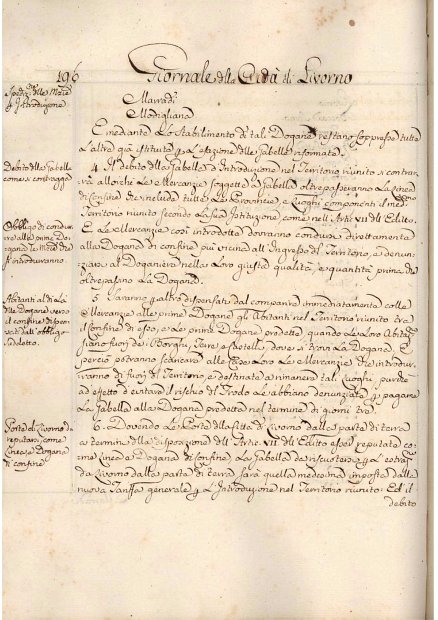 196
Giornale della Città di Livorno
Marradi
Modigliana
E mediante lo stabilimento di tali Dogane restano soppresse tutte
l'altre già istituite p l'esazione delle Gabelle riformate.
4. Il debito della Gabella d'Introduzione nel Territorio riunito si contrar
rà allorchè le Mercanzie soggette a Gabella oltrepasseranno la Linea
di Confine che include tutte le Provincie, e Luoghi componenti il med:
Territorio riunito secondo la sua Instituzione come nell'Artic: VII dell'Editto.
E le Mercanzie così introdotte dovranno condursi direttamente
alla Dogana di confine più vicina all'ingresso del Territorio, e denun
ziarsi al Doganiere nella loro giusta qualità, e quantità prima di
oltrepassare la Dogana.
5. Saranno p altro dispensati dal comparire immediatamente colle
Mercanzie alle prime Dogane gli Abitanti nel Territorio riunito tra
il Confine di esso, e le prime Dogane predette, quando le loro Abitaz:
siano fuori dei Borghi, Terre, e Castelli, dove si trova la Dogana. E
perciò potranno scaricare alle Case loro le Mercanzie che introdur
ranno di fuori di Territorio, e destinate a rimanere in tali Luoghi, purchè
ad effetto d'evitare il rischio di Frodo le abbiano denunziate, e pagatane
la Gabella alla Dogana predetta nel termine di giorni tre.
6. Dovendo le Porte della Città di Livorno dalla parte di terra
a termine della disposizione dell'Artic: VII dell'Editto esser reputate co
me Linea, e Dogana di Confine, la Gabella da riscuotersi p l'estraz:
da Livorno dalla parte di terra, sarà quella medesima imposta dalla
nuova Tariffa generale p l'Introduzione nel Territorio riunito: Ed il
debito
Introduzione
Debito della Gabella
come si contragga
Obbligo di condur
re alle prime Do
gane le Merci che
s'introdurranno
Abitanti al di là
delle Dogane verso
il confine dispen
sati dall'obbligo
sudetto.
Porte di Livorno da
reputarsi come
Linea, e Dogana
di confine